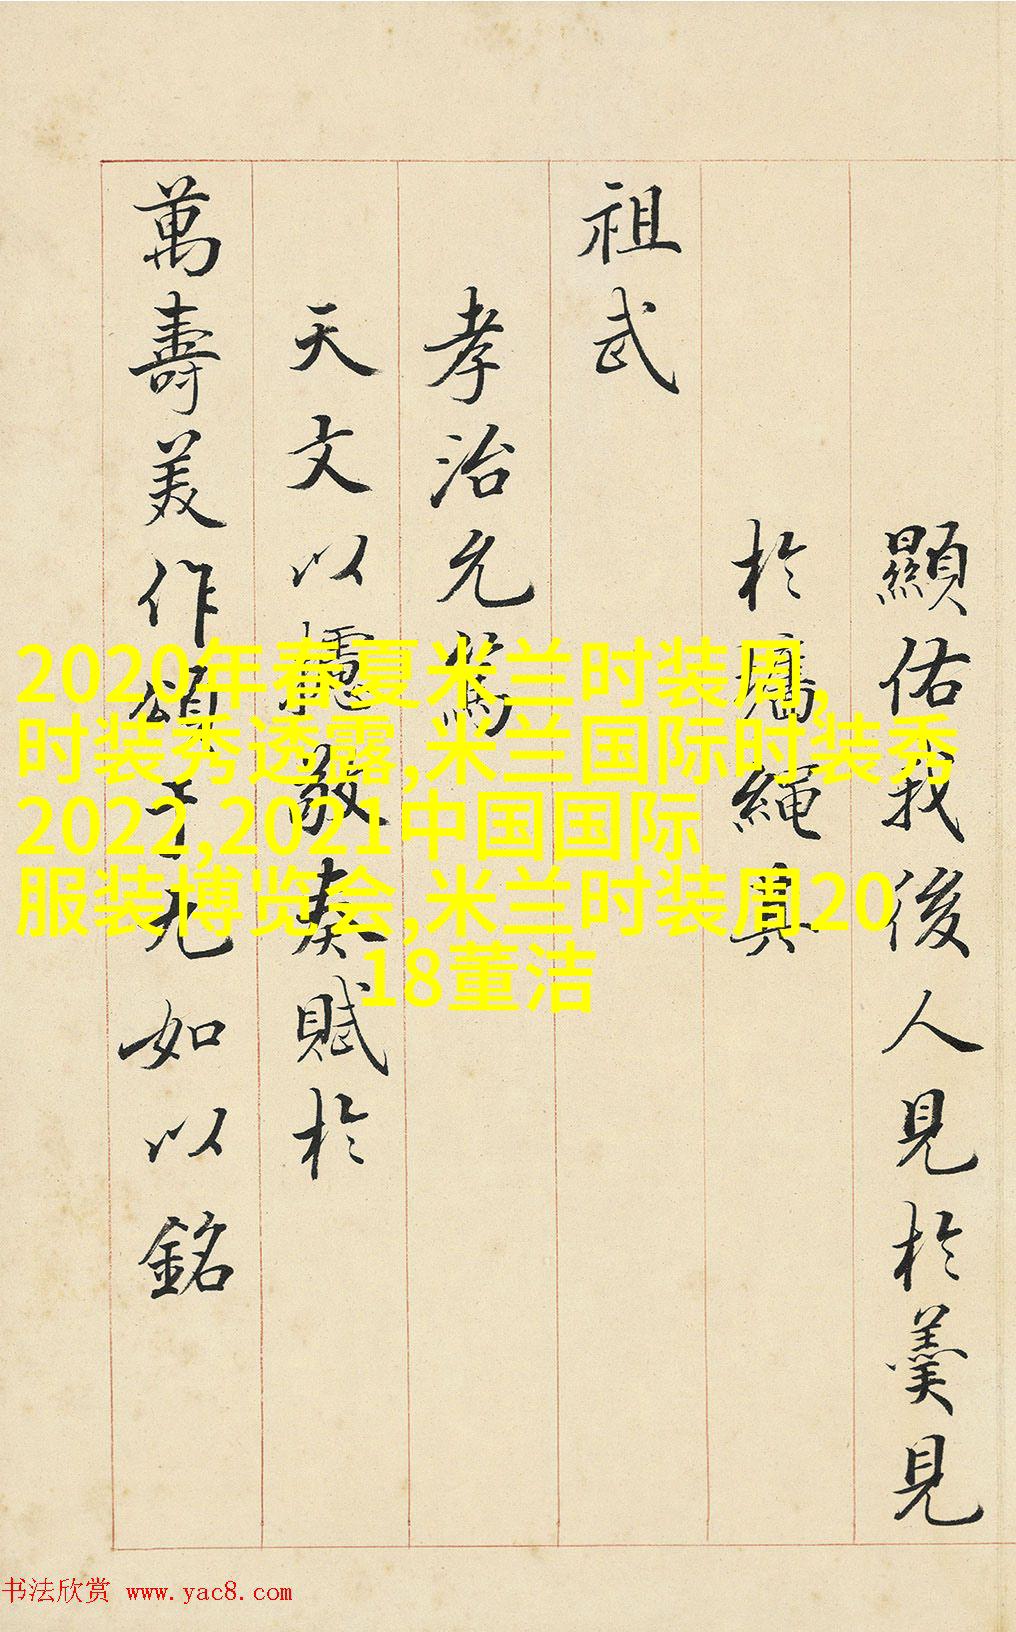 顯佑我後人見於羹見
於牆繩其
祖武
孝治允篤
天文以攄敬奏賦於
萬壽美作頌于九如以銘
2020年春夏米兰时装周,
时装秀透露,米兰国际时装秀
2022,2021中国国际
服装博览会,米兰时装周20
18董洁
书法欣赏 www.yac8.com